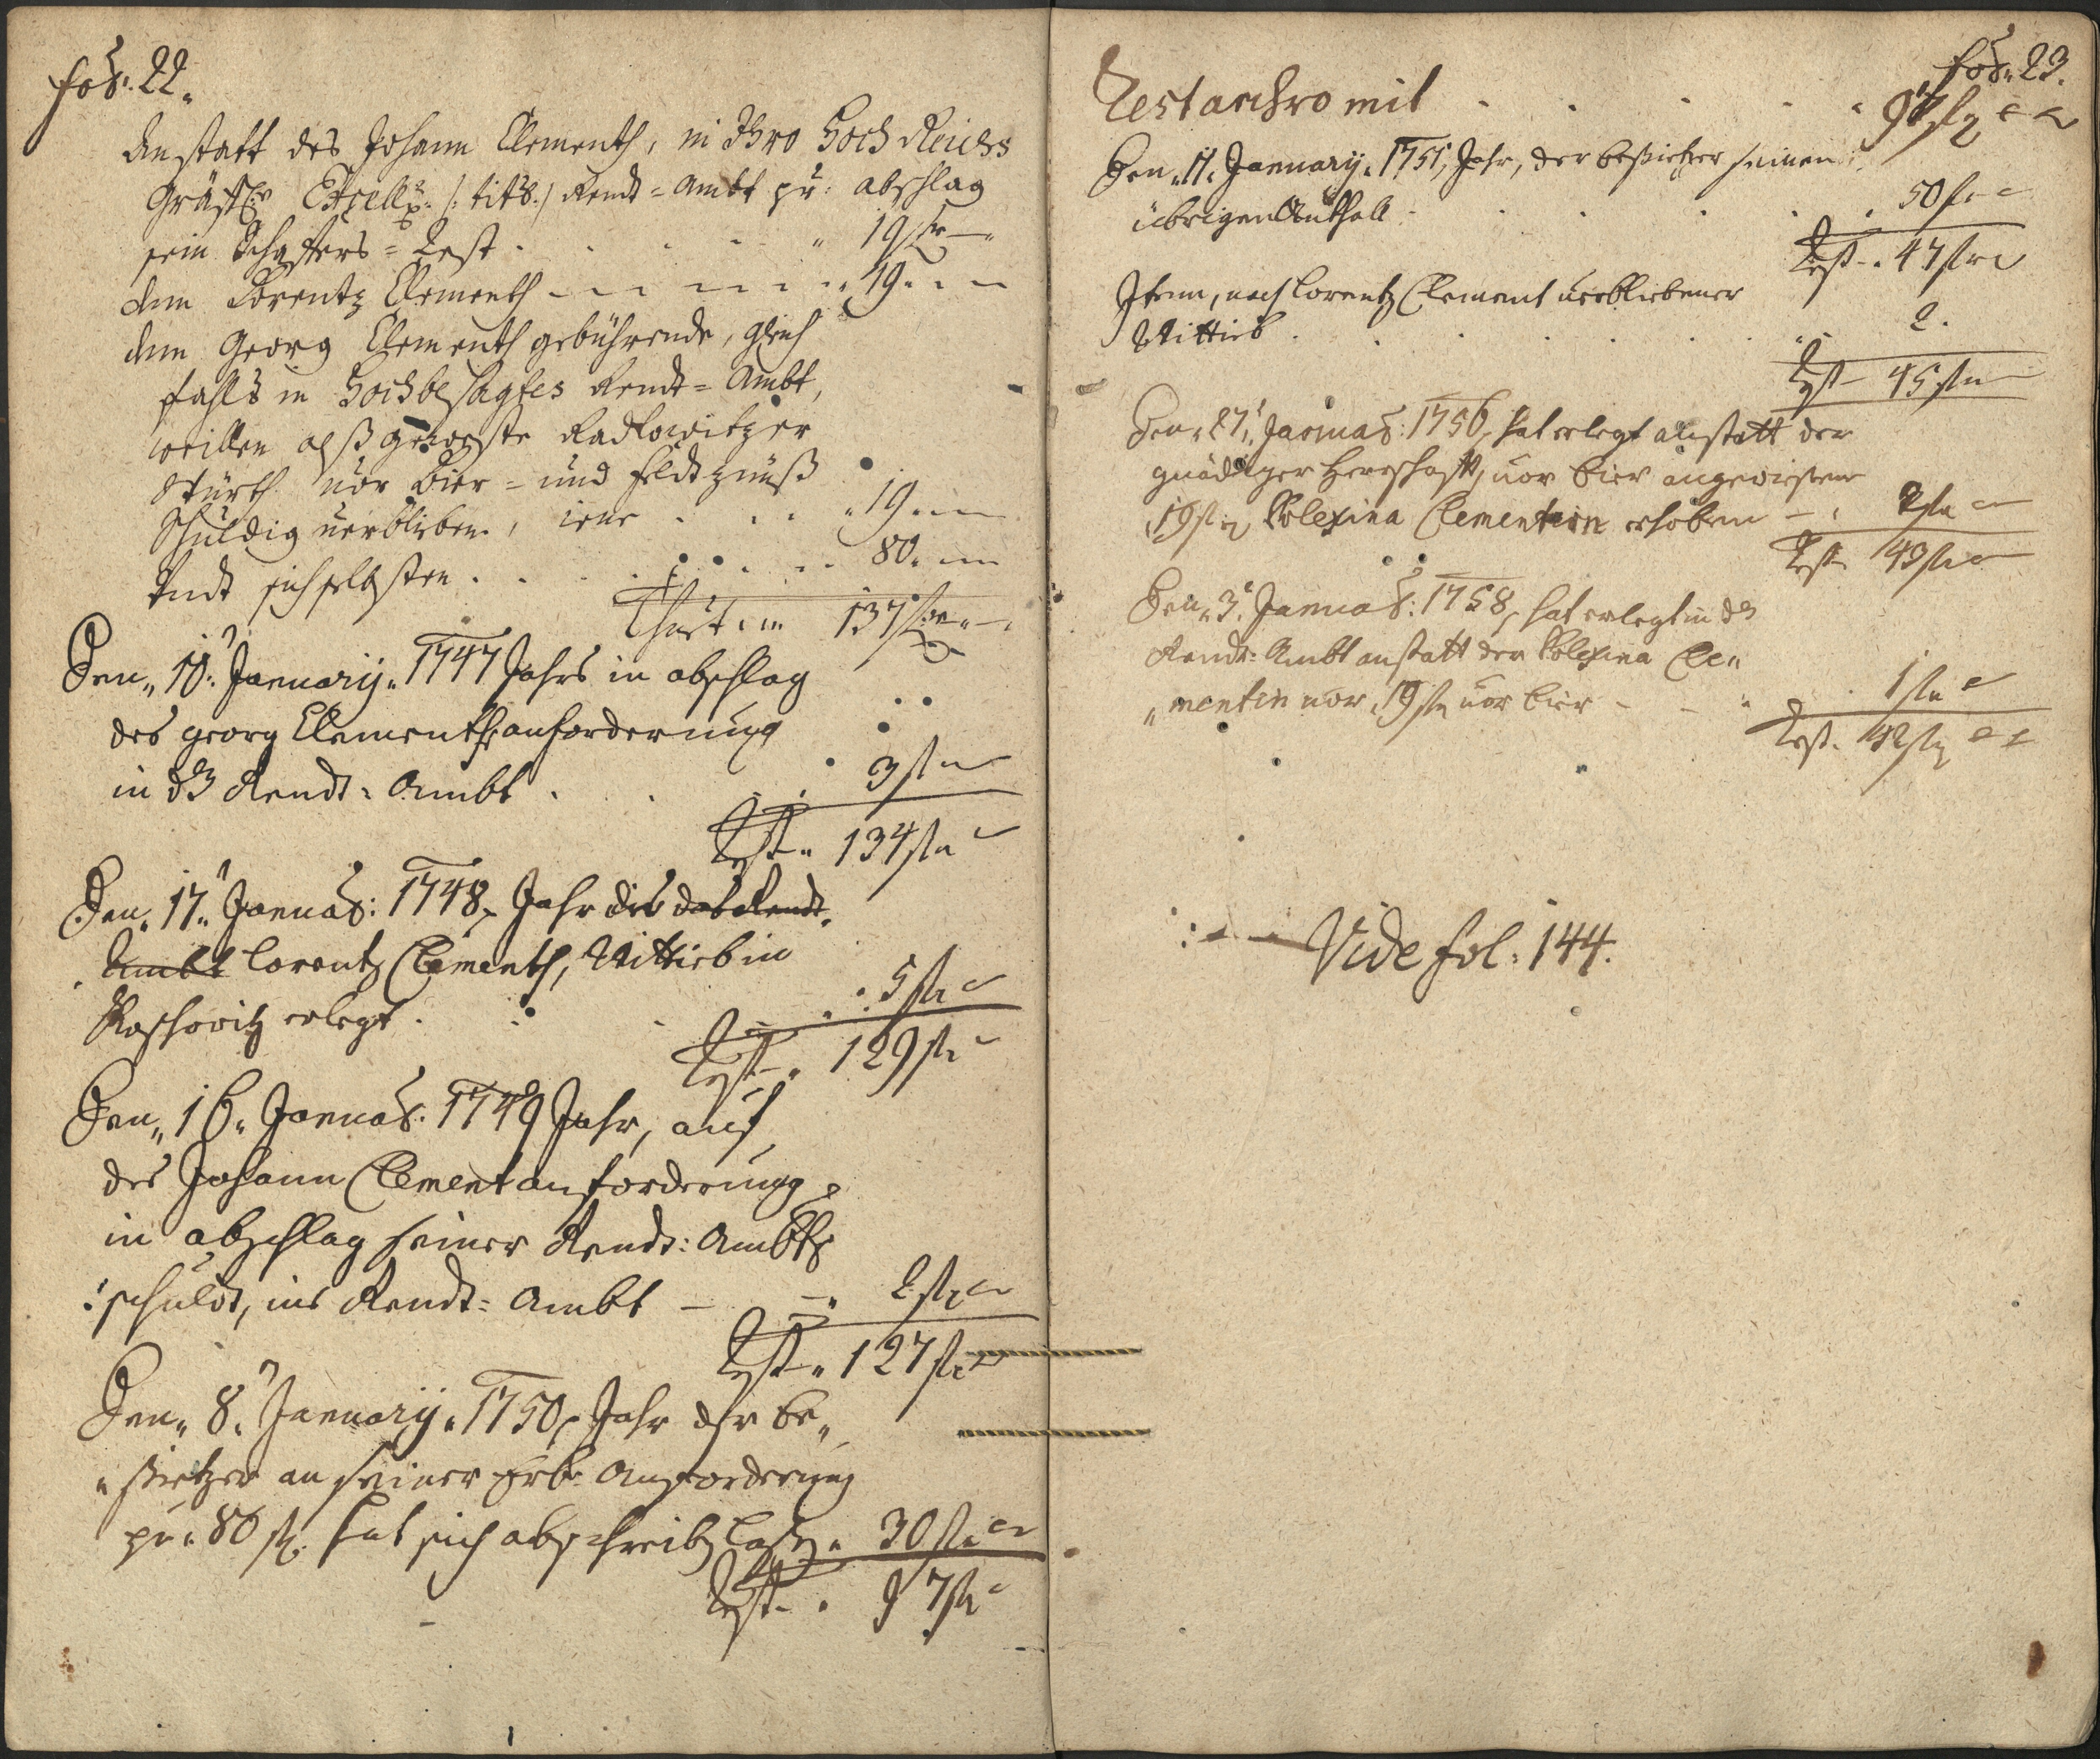 fol: 22.
Anstatt des Johann Clementh, in Ihro Hoch Reichs
Gräffl: Excell: /: titl: / Rendt=Ambt pr: abschlag
sein Schaffers=Rest . . . . . 19 fl —
dem Lorentz Clementh — — — — — 19 . —
dem Georg Clementh gebührende, gleich
fahls in Hochbesagtes Rendt=Ambt,
weillen alß geweste Radlowitzer
Würth vor Bier= und feldt zünß
Schuldig verblieben, . . . 19 . —
Undt sich selbsten . . . . . 80 . —
Thuet . 137 fl —
Den 10: January 1747 Jahrs in abschlag
des georg Clementh anforderung
in dz Rendt=Ambt . . . 3 fl —
Rest 134 fl
Den 17. Januar: 1748 Jahr die das Rendt
Ambt Lorentz Clementh, Wittieb in
erlegt . . . 5 fl
Rest 129 fl
Den 16. Januar: 1749 Jahr, auf
des Johann Clement anforderung
in abschlag seiner Rendt: Ambts
schuld, ins Rendt=Ambt — — 2 fl
Rest 127 fl
Den 8. January 1750 Jahr der be„
„sietzer an seiner Erb: Anforderung
pr: 80 fl. hat sich abschreib lassen 30 fl
Rest . 97 fl
fol: 23.
Restanthro mit . . . . . 97 fl
Den 11. January 1751, Jahr, der besietzer seinen
übrigen Antheil . . . . . 50 fl
Rest . 47 fl
Item, nach Lorentz Clement verbliebener
Wittieb . . . . . 2.
Rest 45 fl
Den 27. Januar: 1756, hat erlegt anstatt der
gnädiger Herrschafft, vor bier angewiesene
19 fl Polexina Clementein erhoben — 2 fl
Rest 43 fl
Den 3. Januar: 1758, hat erlegt in dz
Rendt=Ambt anstatt der Polexina Cle„
„mentin vor 19 fl vor bier — — 1 fl
Rest. 42 fl
Vide fol: 144.